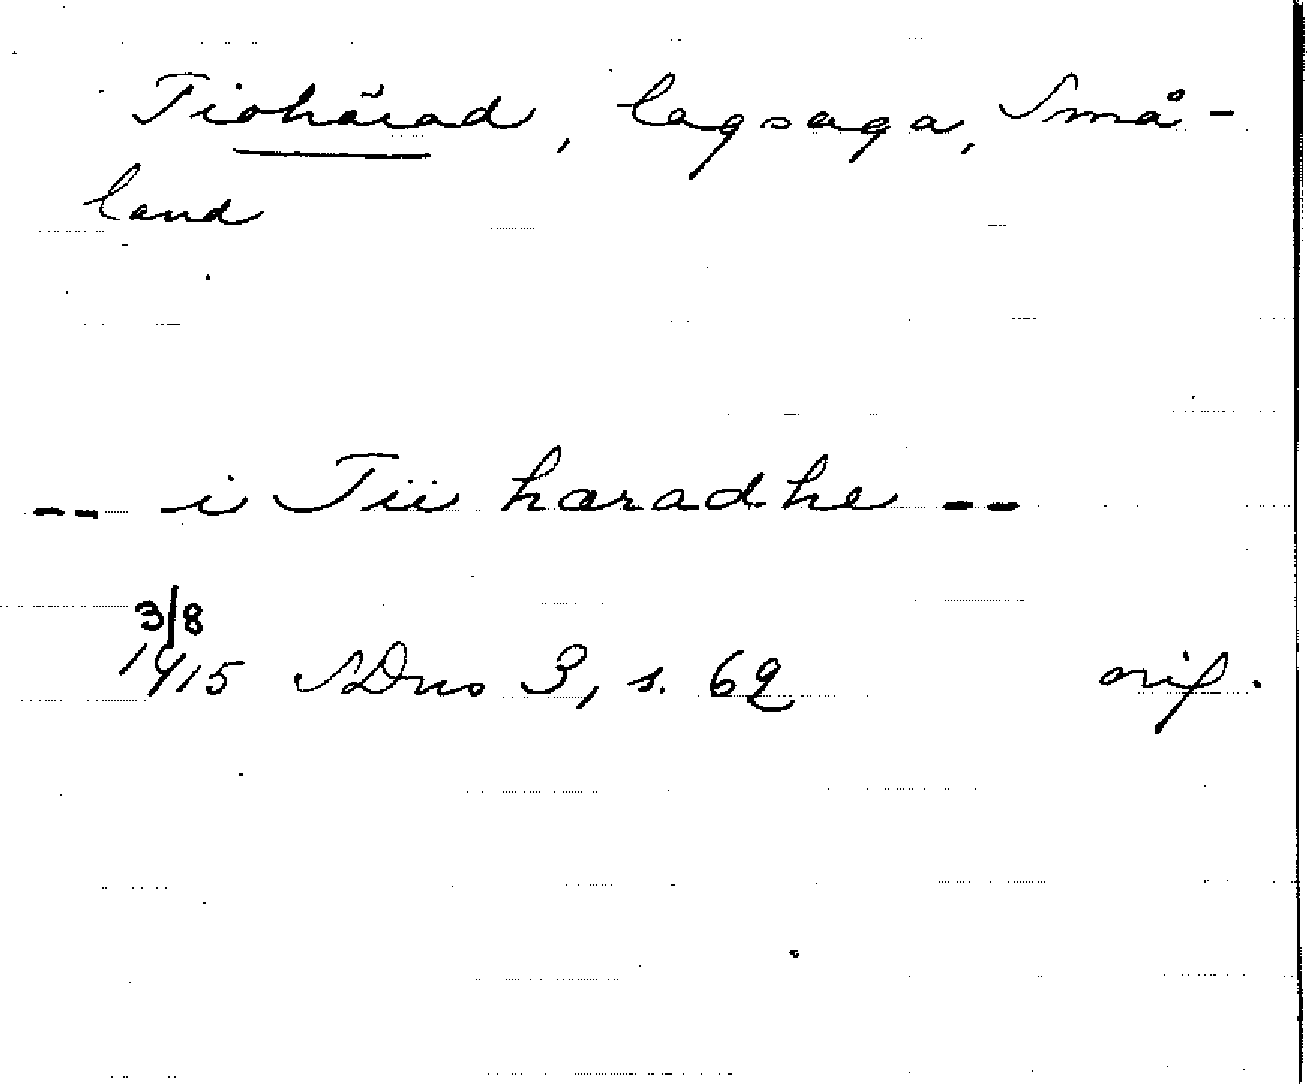 Tiohärad, lagsaga, Små-
land
-- i Tii hæradhe --
3/8
1415 SDns 3, s. 62 orig.